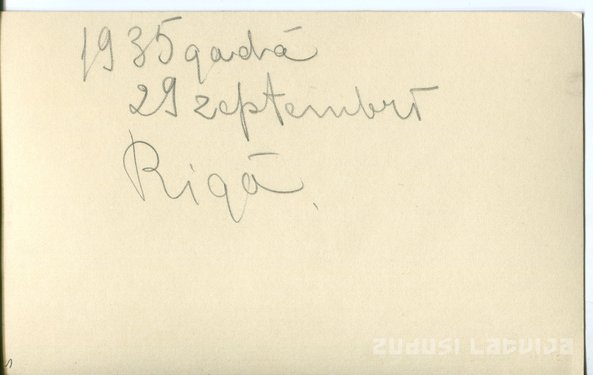 1935 gadā
29 zeptembrī
Rigā.
zudusi Latvija